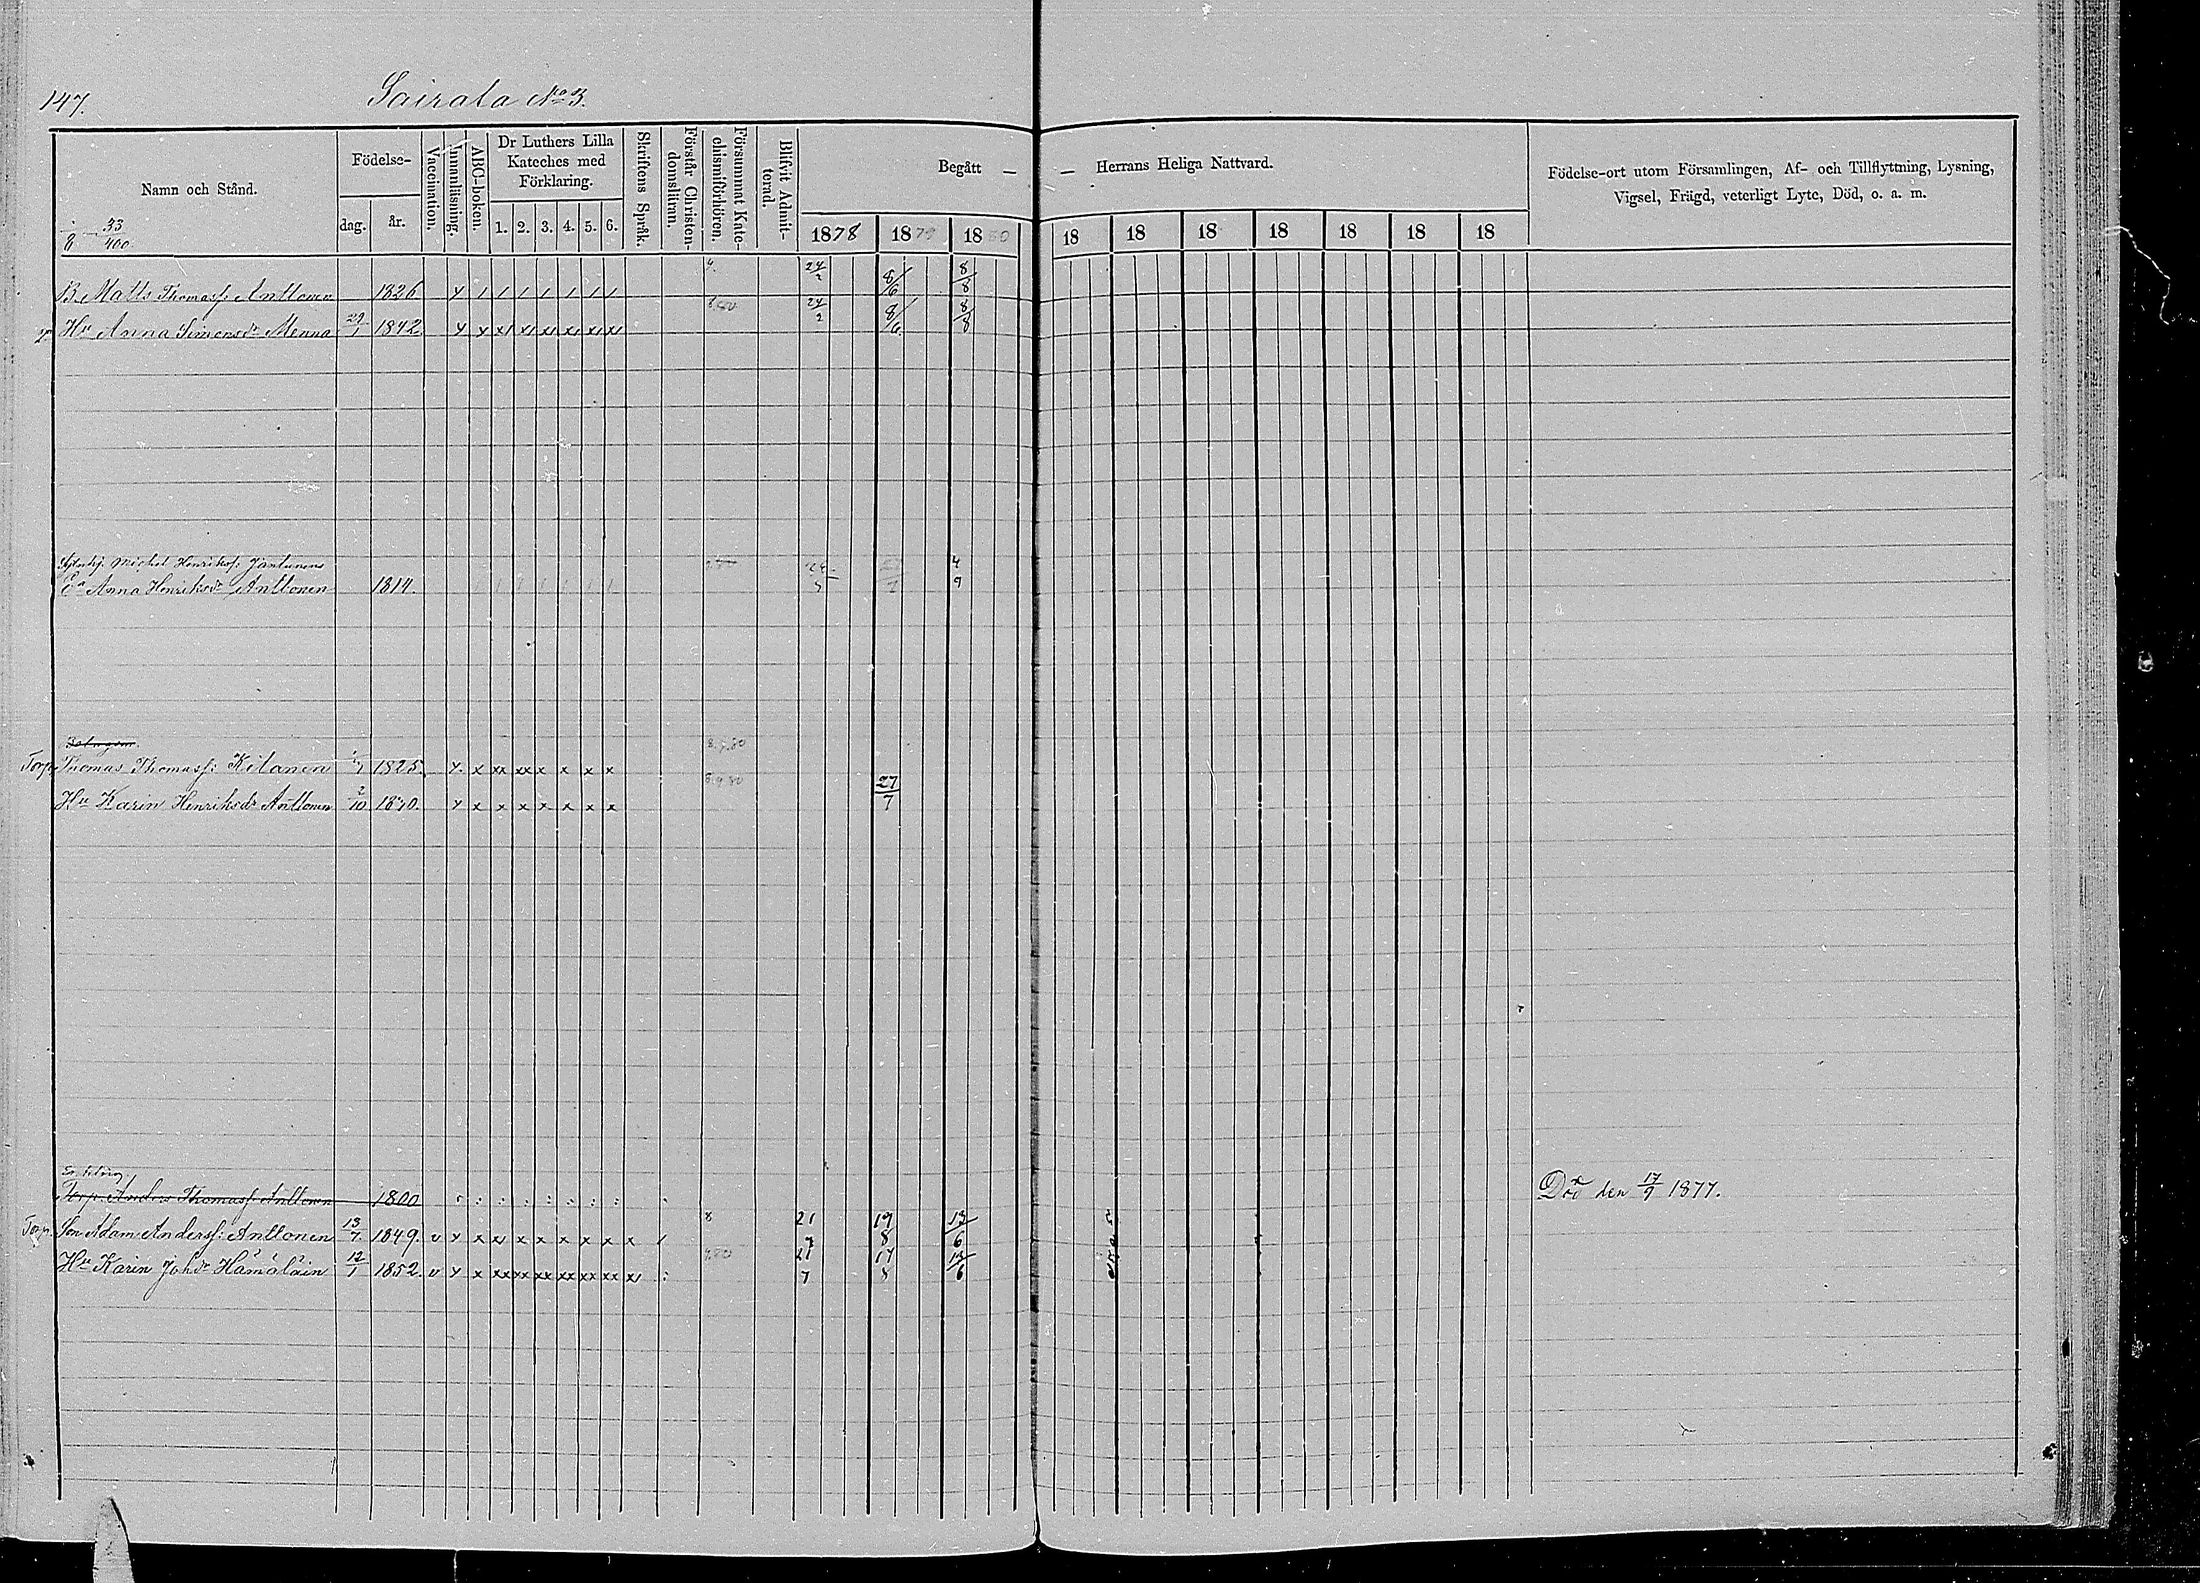 147.
Sairala No 3.
Namn och Stånd.
Födelse-
dag.
år.
Vaccination.
Innanläsning.
ABC-boken.
Dr Luthers Lilla
Kateches med
Förklaring.
1. 2. 3. 4. 5. 6.
Skriftens Språk.
Förstår Christen-
domsläran.
Försummat Kate-
chismiförhören.
Blifvit Admit-
terad.
Begått — — Herrans Heliga Nattvard.
1878 1879 1880 18 18 18 18 18 18 18
Födelse-ort utom Församlingen, Af- och Tillflyttning, Lysning,
Vigsel, Frägd, veterligt Lyte, Död, o. a. m.
33/400
B. Matts Thomass: Anttonen 1826 24/2 8/6 8/8
Hu Anna Simonsdr Menna 29/1 1842 24/2 8/6 8/8
Michel Henrikss: Jantunens
Ea Anna Henriksdr Anttonen 1814. 4 9
Torp. Thomas Thomass: Kilanen 1825. 8.9.80
Hu Karin Henriksdr Anttonen 2/10 1830. 8.9.80 27/7
Enkling
Torp. Anders Thomass: Anttonen 1800 Död den 17/9 1877.
Torp. Son Adam Anderss: Anttonen 13/7 1849. v 8 21/7 17/8 13/6
Hu Karin Johdr Hämäläin 12/1 1852. v 21/7 17/8 13/6